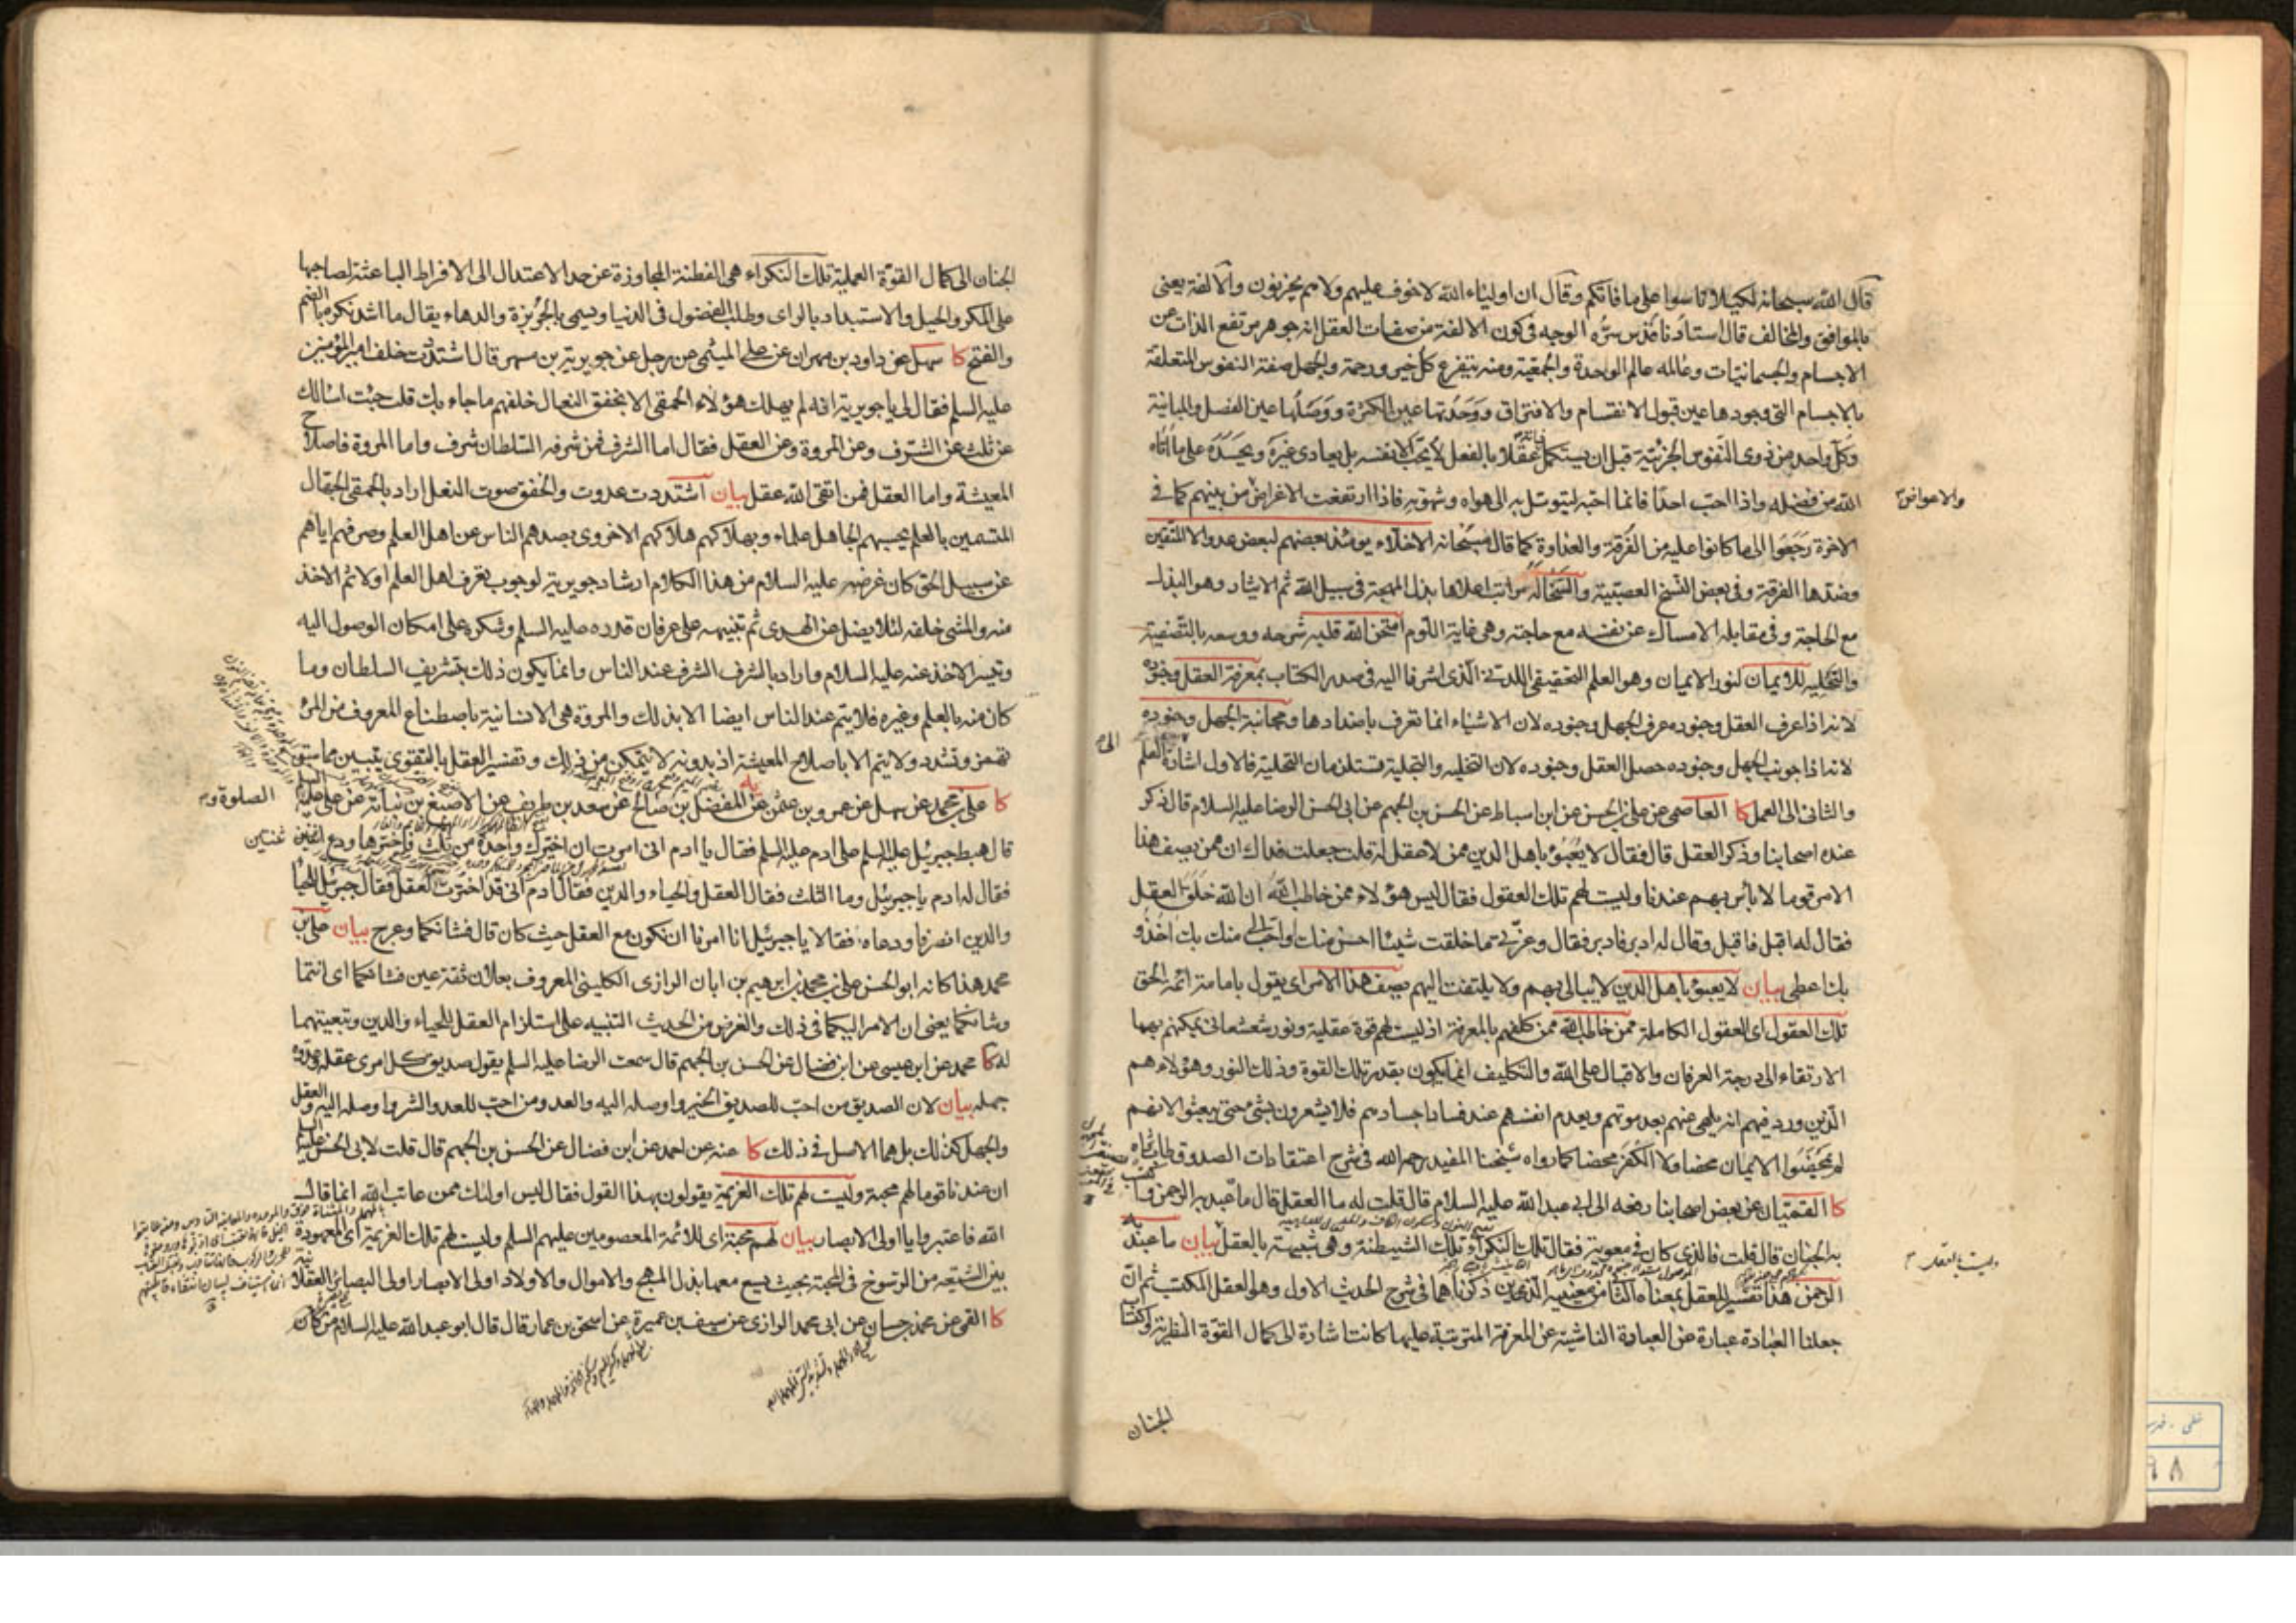 قال الله سبحانه لكيلا تاسوا على ما فاتكم وقال ان اولياء الله لا خوف عليهم ولا هم يحزنون والالفة يعنى
بالموافق والمخالف قال استادنا قدس سره الوجه فى كون الالفة من صفات العقل انه جوهر مرتفع الذات عن
الاجسام والجسمانيات وعالمه عالم الوحدة والجمعية ومنه يتفرع كل خير ورحمة والجهل صفة النفوس المتعلقة
بالاجسام التى وجودها عين قبول الانقسام والافتراق ووحدتها عين الكثرة ووصلها عين الفصل والمباينة
وكل واحد من ذوى النفوس الجزئية قبل ان يستكمل عقلا بالفعل لا يحب الا نفسه بل يعادى غيره ويحسده على ما اتاه
الله من فضله واذا احب احدا فانما احبه ليتوسل به الى هواه وشهوته فاذا ارتفعت الاغراض من بينهم كما فى
والاعواض
الاخرة رجعوا الى ما كانوا عليه من الفرقة والعداوة كما قال سبحانه الاخلاء يومئذ بعضهم لبعض عدو الا المتقين
وضدها الفرقة وفى بعض النسخ العصبية والسخا له مراتب اعلاها بذل المهجة فى سبيل الله ثم الايثار وهو البذل
مع الحاجة وفى مقابله الامساك عن نفسه مع حاجته وهى غاية اللوم امتحن الله قلبه شرحه ووسعه بالتصفية
والتخلية للايمان لنور الايمان وهو العلم التحقيقى اللدنى الذى اشرنا اليه فى صدر الكتاب بمعرفة العقل وجنوده
لانه اذا عرف العقل وجنوده عرف الجهل وجنوده لان الاشياء انما تعرف باضدادها ومجانبة الجهل وجنوده
لانه اذا جونب الجهل وجنوده حصل العقل وجنوده لان التخلية والتحلية متلازمان فالاول اشارة الى العلم
والثانى الى العمل كا العاصمى عن على بن الحسن عن ابن اسباط عن الحسن بن الجهم عن ابى الحسن الرضا عليه السلام قال ذكر
عنده اصحابنا وذكر العقل قال فقال لا يعبؤ باهل الدين ممن لا عقل له قلت جعلت فداك ان ممن يصف هذا
الامر قوما لا بأس بهم عندنا وليست لهم تلك العقول فقال ليس هؤلاء ممن خاطب الله ان الله خلق العقل
فقال له اقبل فاقبل وقال له ادبر فادبر فقال وعزتى ما خلقت شيئا احسن منك او احب الى منك بك اخذ و
بك اعطى بيان لا يعبؤ باهل الدين لا يبالى بهم ولا يلتفت اليهم يصف هذا الامر اى يقول بامامة ائمة الحق
تلك العقول اى العقول الكاملة ممن خاطب الله ممن كلفهم بالمعرفة اذ ليست لهم قوة عقلية ونور شعشعانى يمكنهم بها
الارتقاء الى درجة العرفان والاقبال على الله والتكليف انما يكون بقدر تلك القوة وذلك النور وهؤلاء هم
الذين ورد فيهم انه يلهى عنهم بعد موتهم ويعدم انفسهم عند فساد اجسادهم فلا يشعرون بشئ حتى يبعثوا لانهم
لم يمحضوا الايمان محضا ولا الكفر محضا كما رواه شيخنا المفيد رحمه الله فى شرح اعتقادات الصدوق طاب ثراه
كا القميان عن بعض اصحابنا رفعه الى ابى عبد الله عليه السلام قال قلت له ما العقل قال ما عبد به الرحمن واكتسب
به الجنان قال قلت فالذى كان فى معوية فقال تلك النكراء تلك الشيطنة وهى شبيهة بالعقل بيان ما عبد به
وليست بالعقل
الرحمن هذا تفسير للعقل بمعناه الثانى من معنييه الذين ذكرناهما فى شرح الحديث الاول وهو العقل المكتسب ثم ان
جعلنا العبادة عبارة عن العبادة الناشية عن المعرفة المترتبة عليها كانت اشارة الى كمال القوة النظرية واكتساب
الجنان
الجنان الى كمال القوة العملية تلك النكراء هى الفطنة المجاوزة عن حد الاعتدال الى الافراط الباعثة لصاحبها
على المكر والحيل والاستبداد بالراى وطلب الفضول فى الدنيا ويسمى بالجربزة والدهاء يقال ما اشد نكره بالضم
والفتح كا سهل عن داود بن مهران عن على الميثمى عن رجل عن جويرية بن مسهر قال اشتددت خلف امير المؤمنين
عليه السلم فقال لى يا جويرية انه لم يهلك هؤلاء الحمقى الا بخفق النعال خلفهم ما جاء بك قلت جئت اسالك
عن ثلث عن الشرف وعن المروة وعن العقل فقال اما الشرف فمن شرفه السلطان شرف واما المروة فاصلاح
المعيشة واما العقل فمن اتقى الله عقل بيان اشتددت عدوت والخفق صوت النعل اراد بالحمقى الجهال
المتسمين بالعلم يحسبهم الجاهل علماء وبهلاكهم هلاكهم الاخروى بصدهم الناس عن اهل العلم وصرفهم اياهم
عن سبيل الحق كان غرضه عليه السلام من هذا الكلام ارشاد جويرية لوجوب تعرف اهل العلم اولا ثم الاخذ
منه والمشى خلفه لئلا يضل عن الهدى ثم تنبيهه على عرفان قدره عليه السلم وشكره على امكان الوصول اليه
وتيسر الاخذ عنه عليه السلام واراد بالشرف الشرف عند الناس وانما يكون ذلك بتشريف السلطان وما
كان منه بالعلم وغيره فلا يتم عند الناس ايضا الا بذلك والمروة هى الانسانية باصطناع المعروف من المرء
تهمز وتشدد ولا يتم الا باصلاح المعيشة اذ بدونه لا يتمكن من ذلك وتفسير العقل بالتقوى يتبين مما سبق
كا على بن محمد عن سهل عن عمرو بن عثمن عن المفضل بن صالح عن سعد بن طريف عن الاصبغ بن نباتة عن على عليه السلم
قال هبط جبرئيل عليه السلم على ادم عليه السلم فقال يا ادم انى امرت ان اخيرك واحدة من ثلث فاخترها ودع اثنتين
فقال له ادم يا جبرئيل وما الثلث فقال العقل والحياء والدين فقال ادم انى قد اخترت العقل فقال جبرئيل للحياء
والدين انصرفا ودعاه فقالا يا جبرئيل انا امرنا ان نكون مع العقل حيث كان قال فشانكما وعرج بيان على بن
محمد هذا كانه ابو الحسن على بن محمد بن ابرهيم بن ابان الرازى الكلينى المعروف بعلان ثقة عين فشانكما اى انتما
وشانكما يعنى ان الامر اليكما فى ذلك والغرض من الحديث التنبيه على استلزام العقل للحياء والدين وتبعيتهما
له كا محمد عن ابن عيسى عن ابن فضال عن الحسن بن الجهم قال سمعت الرضا عليه السلم يقول صديق كل امرئ عقله وعدوه
جهله بيان لان الصديق من احب للصديق الخير واوصله اليه والعدو من احب للعدو الشر واوصله اليه والعقل
والجهل كذلك بل هما الاصل فى ذلك كا عنه عن احمد عن ابن فضال عن الحسن بن الجهم قال قلت لابى الحسن عليه السلم
ان عندنا قوما لهم محبة وليست لهم تلك العزيمة يقولون بهذا القول فقال ليس اولئك ممن عاتب الله انما قال
الله فاعتبروا يا اولى الابصار بيان لهم محبة اى للائمة المعصومين عليهم السلم وليست لهم تلك العزيمة اى المعهودة
بين الشيعة من الرسوخ فى المحبة بحيث يسع معها بذل المهج والاموال والاولاد اولى الابصار اولى البصائر العقلا
كا القمى عن محمد بن حسان عن ابى محمد الرازى عن سيف بن عميرة عن اسحق بن عمار قال قال ابو عبد الله عليه السلام من كان